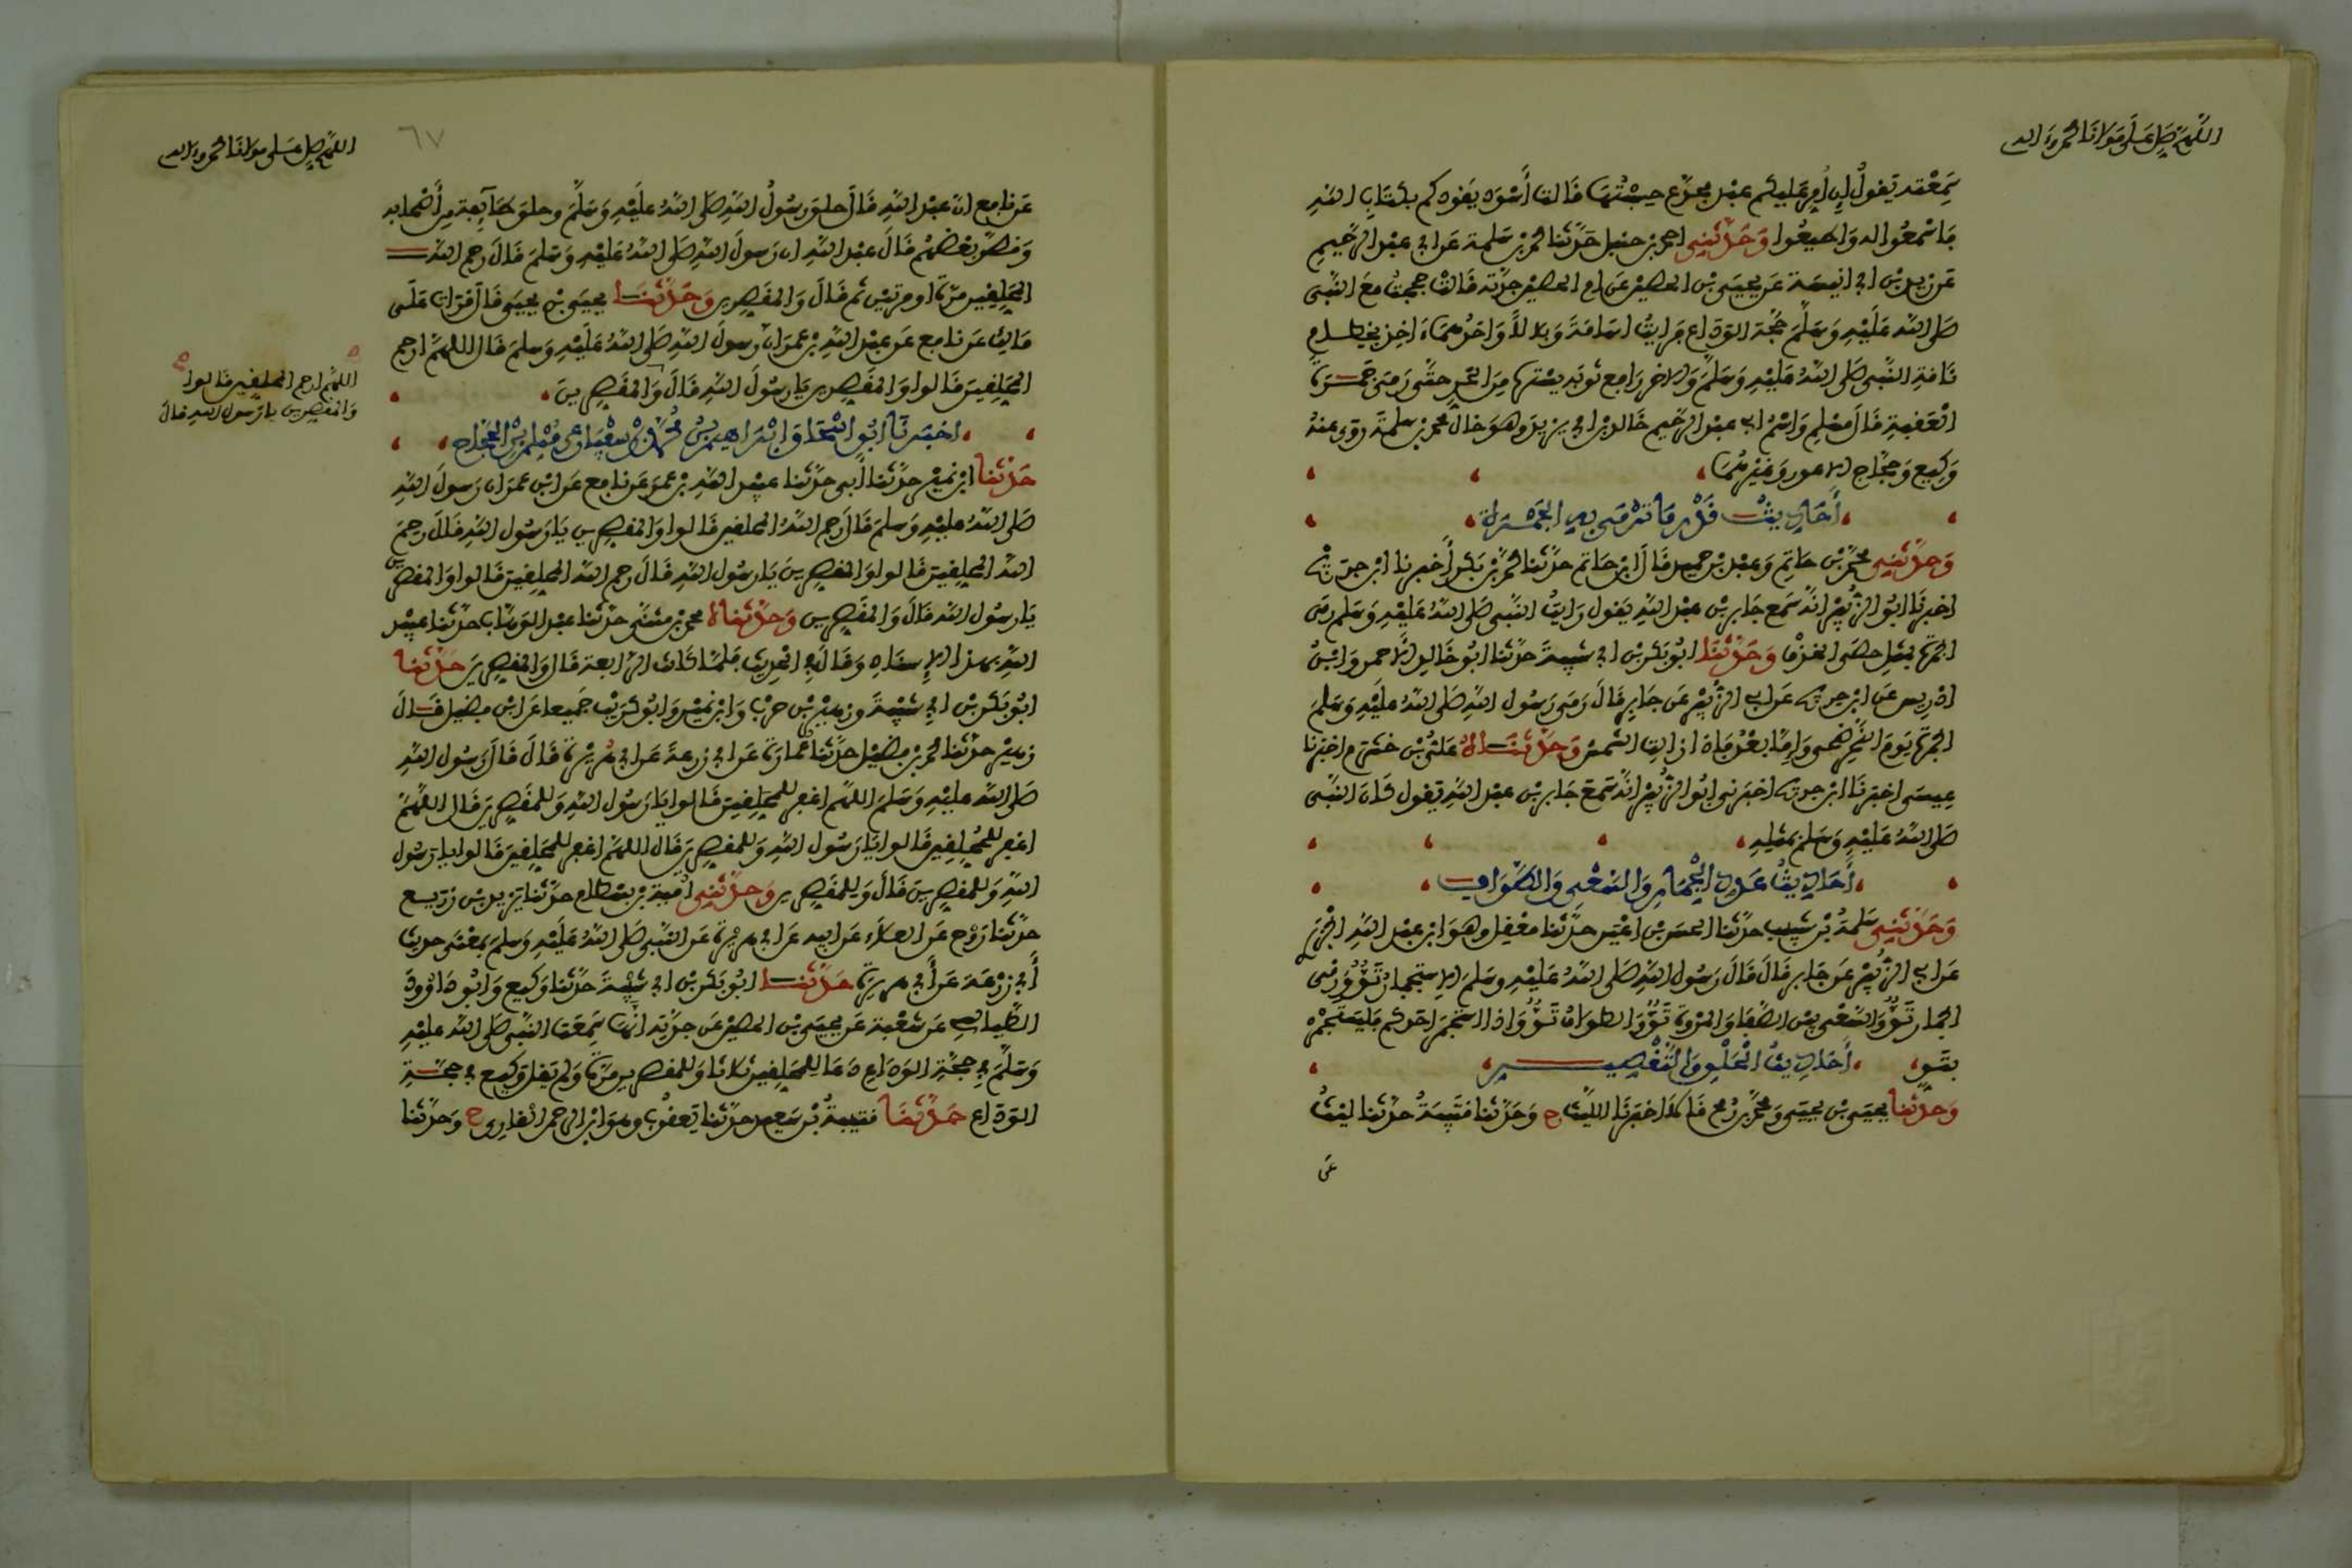 اللهم صل على مولانا محمد وءاله
سمعته تقول إن أمر عليكم عبد مجدع حسبتها قالت أسود يقودكم بكتاب الله
فاسمعوا له وأطيعوا وحدثني احمد بن حنبل حدثنا محمد بن سلمة عن ابي عبد الرحيم
عن زيد بن ابي انيسة عن يحيى بن الحصين عن ام الحصين جدته قالت حججت مع النبي
صلى الله عليه وسلم حجة الوداع فرايت اسامة وبلالا واحدهما ءاخذ بخطام
ناقة النبي صلى الله عليه وسلم والاخر رافع ثوبه يستره من الحر حتى رمى جمرة
العقبة قال مسلم واسم ابي عبد الرحيم خالد بن ابي يزيد وهو خال محمد بن سلمة روى عنه
وكيع وحجاج الاعور وغيرهما
أحاديث قدر ما ترمى به الجمرة
وحدثني محمد بن حاتم وعبد بن حميد قال ابن حاتم حدثنا محمد بن بكر أخبرنا ابن جريج
اخبرنا ابو الزبير انه سمع جابر بن عبد الله يقول رايت النبي صلى الله عليه وسلم رمى
الجمرة بمثل حصى الخذف وحدثنا ابو بكر بن ابي شيبة حدثنا ابو خالد الاحمر وابن
ادريس عن ابن جريج عن ابي الزبير عن جابر قال رمى رسول الله صلى الله عليه وسلم
الجمرة يوم النحر ضحى وإما بعد فإذا زالت الشمس وحدثناه علي بن خشرم اخبرنا
عيسى اخبرنا ابن جريج اخبرني ابو الزبير انه سمع جابر بن عبد الله يقول كان النبي
صلى الله عليه وسلم بمثله
أحاديث عدد الجمار والسعي والطواف
وحدثني سلمة بن شبيب حدثنا الحسن بن اعين حدثنا معقل وهو ابن عبد الله الجزري
عن ابي الزبير عن جابر قال قال رسول الله صلى الله عليه وسلم الاستجمار تو ورمى
الجمار تو والسعي بين الصفا والمروة تو والطواف تو واذا استجمر احدكم فليستجمر
بتو أحاديث الحلق والتقصير
وحدثنا يحيى بن يحيى ومحمد بن رمح قالا اخبرنا الليث ح وحدثنا قتيبة حدثنا ليث
عن
اللهم صل على مولانا محمد وءاله
٦٧
عن نافع ان عبد الله قال حلق رسول الله صلى الله عليه وسلم وحلق طآيفة من أصحابه
وقصر بعضهم قال عبد الله ان رسول الله صلى الله عليه وسلم قال رحم الله
المحلقين مرة او مرتين ثم قال والمقصرين وحدثنا يحيى بن يحيى قال قرات على
مالك عن نافع عن عبد الله بن عمر ان رسول الله صلى الله عليه وسلم قال اللهم ارحم
المحلقين قالوا والمقصرين يا رسول الله قال والمقصرين
اللهم ارحم المحلقين قالوا
والمقصرين يا رسول الله قال
اخبرنا ابو اسحق ابراهيم بن محمد بن سفيان عن مسلم بن الحجاج
حدثنا ابن نمير حدثنا أبي حدثنا عبيد الله بن عمر عن نافع عن ابن عمر ان رسول الله
صلى الله عليه وسلم قال رحم الله المحلقين قالوا والمقصرين يا رسول الله قال رحم
الله المحلقين قالوا والمقصرين يا رسول الله قال رحم الله المحلقين قالوا والمقصرين
يا رسول الله قال والمقصرين وحدثناه محمد بن مثنى حدثنا عبد الوهاب حدثنا عبيد
الله بهذا الإسناد وقال في الحديث فلما كانت الرابعة قال والمقصرين حدثنا
ابو بكر بن ابي شيبة وزهير بن حرب وابن نمير وابو كريب جميعا عن ابن فضيل قال
زهير حدثنا محمد بن فضيل حدثنا عمارة عن ابي زرعة عن ابي هريرة قال قال رسول الله
صلى الله عليه وسلم اللهم اغفر للمحلقين قالوا يا رسول الله وللمقصرين قال اللهم
اغفر للمحلقين قالوا يا رسول الله وللمقصرين قال اللهم اغفر للمحلقين قالوا يا رسول
الله وللمقصرين قال وللمقصرين وحدثني امية بن بسطام حدثنا يزيد بن زريع
حدثنا روح عن العلاء عن ابيه عن ابي هريرة عن النبي صلى الله عليه وسلم بمعنى حديث
أبي زرعة عن أبي هريرة حدثنا ابو بكر بن ابي شيبة حدثنا وكيع وابو داوود
الطيالسي عن شعبة عن يحيى بن الحصين عن جدته انها سمعت النبي صلى الله عليه
وسلم في حجة الوداع دعا للمحلقين ثلاثا وللمقصرين مرة ولم يقل وكيع في حجة
الوداع حدثنا قتيبة بن سعيد حدثنا يعقوب وهو ابن الرحمن القاري ح وحدثنا